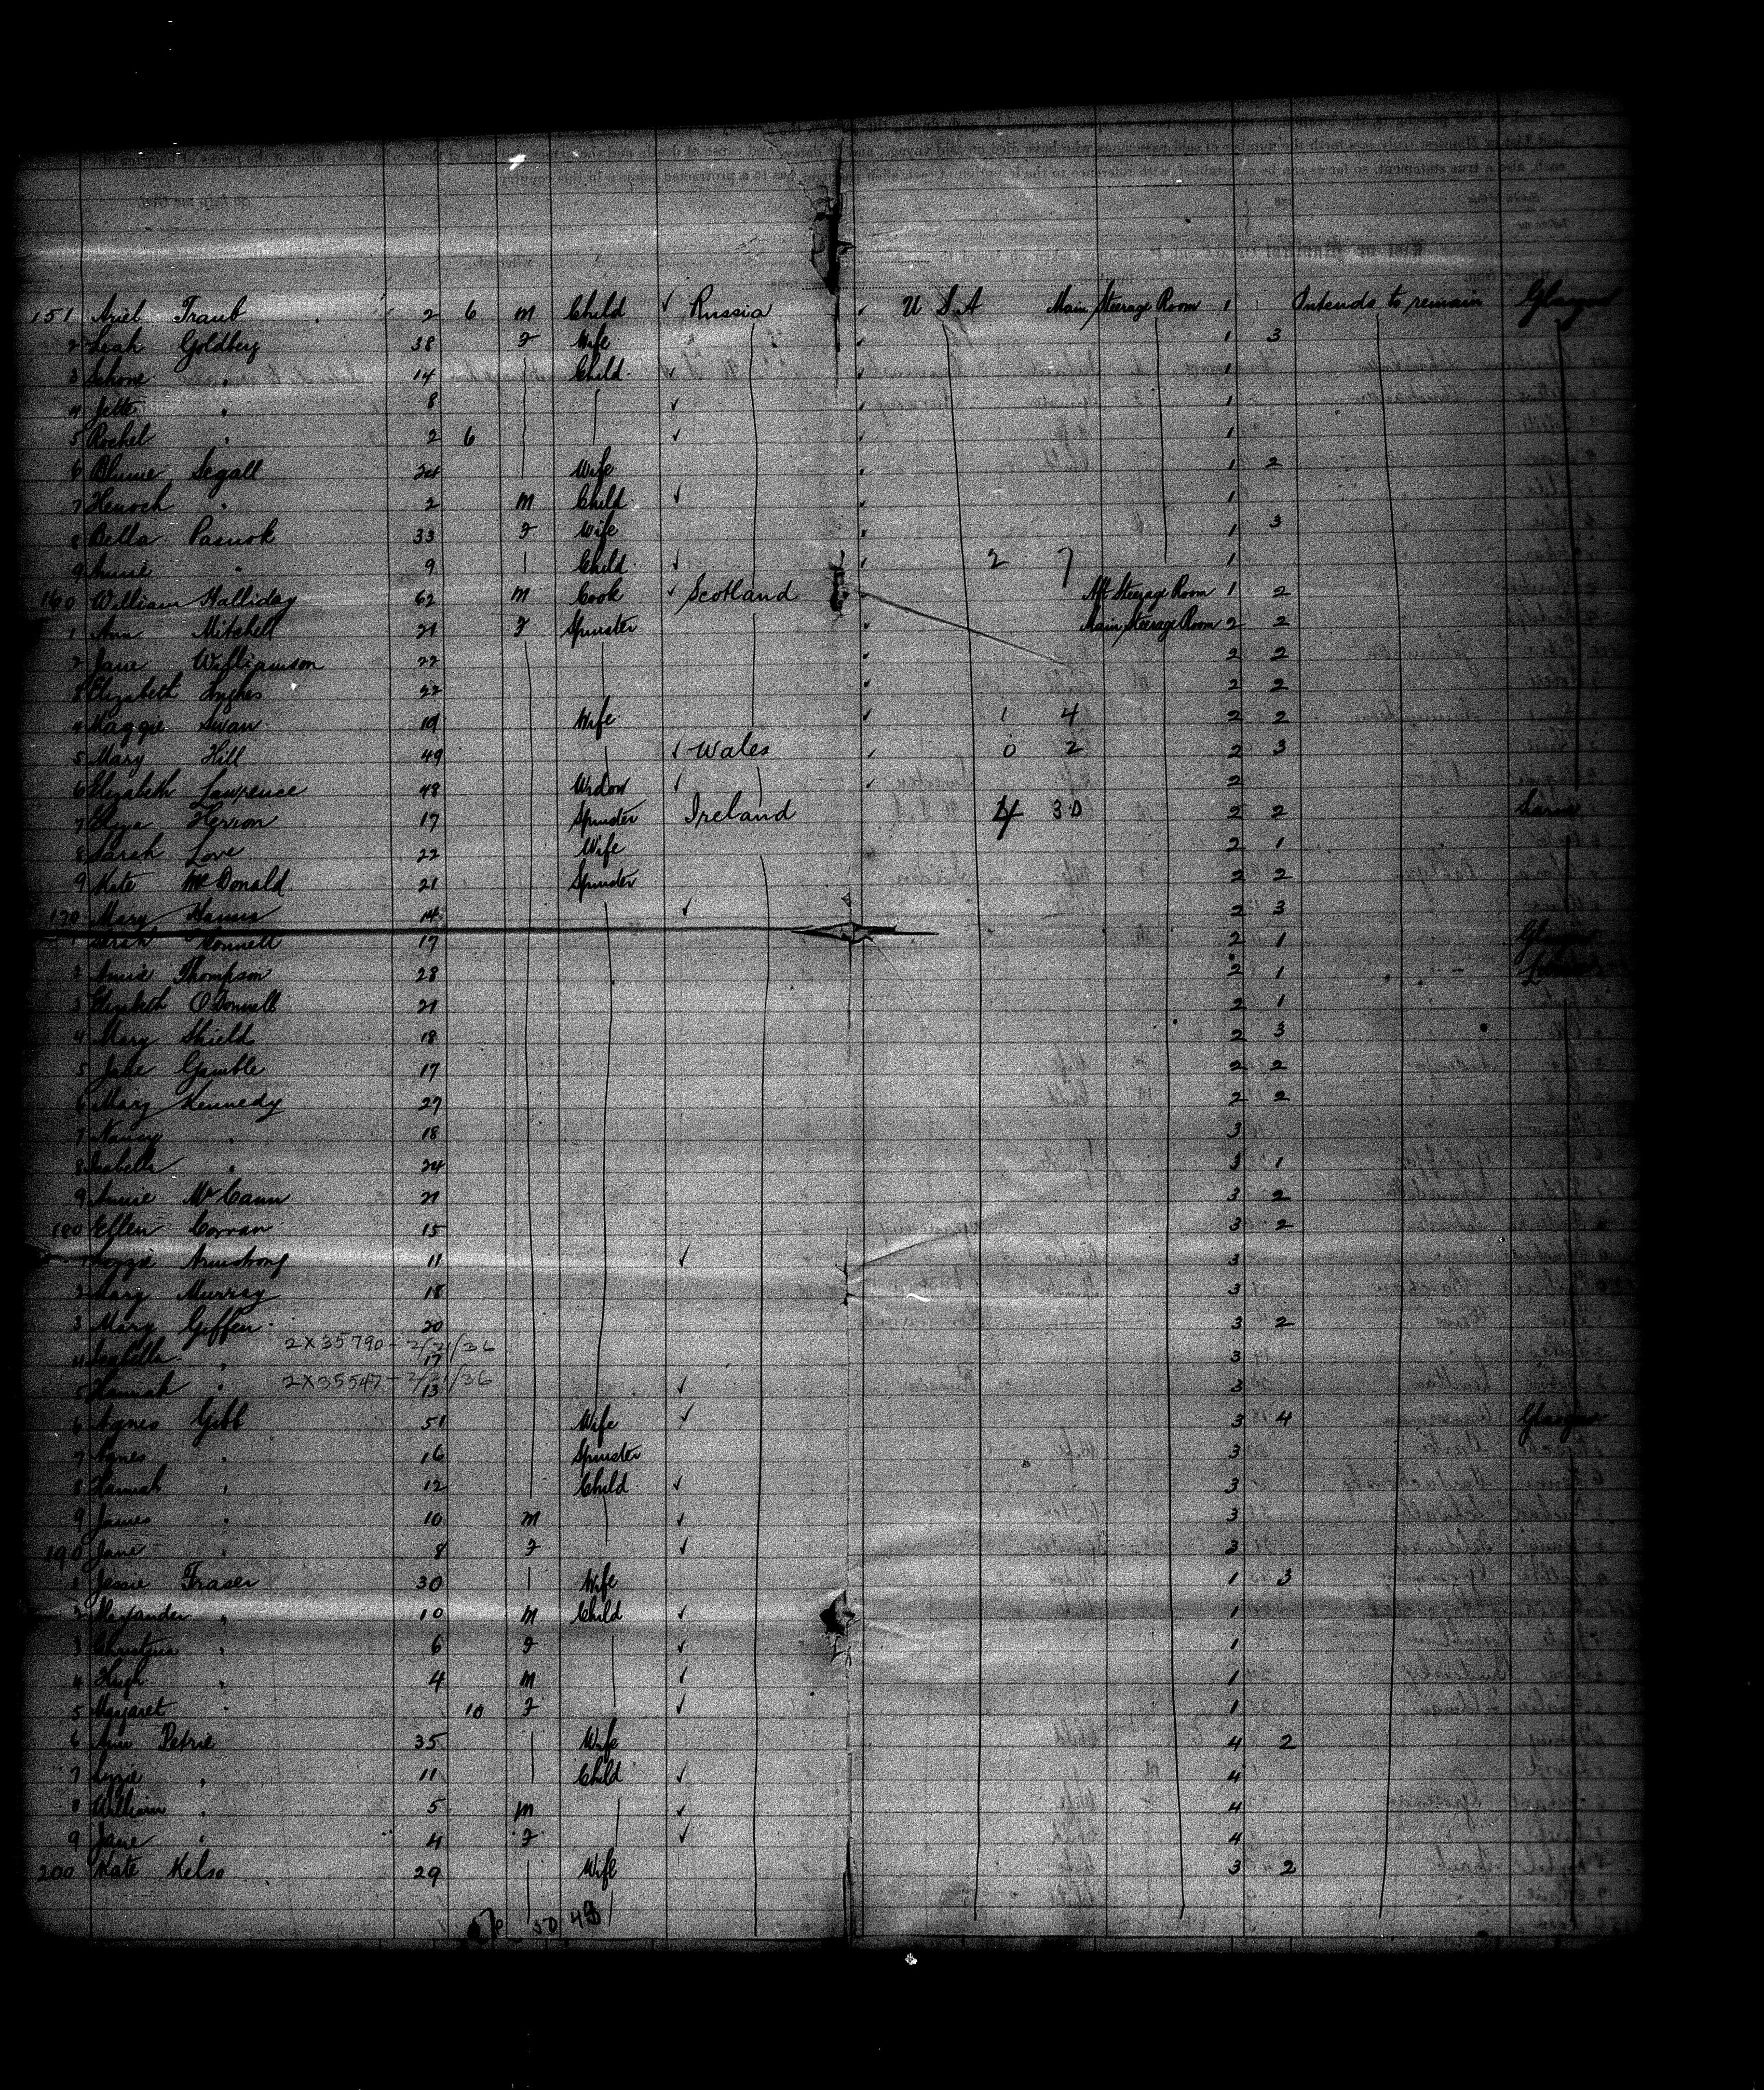 151 Ariel Traub 2 6 m Child ✓ Russia ✓ U S A Main Steerage Room 1 Intends to remain Glasgow
2 Leah Goldberg 38 F Wife 1 3
3 " 14 Child ✓ 1
4 Jette " 8 ✓ 1
5 Rochel " 2 6 ✓ 1
6 Blume Segall 24 Wife 1 2
7 Henoch " 2 m Child ✓ 1
8 Bella 33 F Wife 1 3
9 Annie " 9 Child ✓ 2 7 1
160 William Halliday 62 m Cook ✓ Scotland Aft Steerage Room 1 2
1 Ann Mitchell 21 F Spinster Main Steerage Room 2 2
2 Jane Williamson 22 2 2
3 Elizabeth Hughes 22 2 2
4 Maggie Swan 19 Wife 1 4 2 2
5 Mary Hill 49 ✓ Wales 0 2 2 3
6 Elizabeth Lawrence 48 Widow ✓ 2
7 Herron 17 Spinster Ireland 4 30 2 2 Larne
8 Sarah Love 22 Wife 2 1
9 Kate McDonald 21 Spinster 2 2
170 Mary 14 ✓ 2 3
1 Sarah Connell 17 2 1 Glasgow
2 Annie Thompson 28 2 1
3 Elizabeth O'Donnell 21 2 1
4 Mary Shields 18 2 3
5 Jane Gamble 17 2 2
6 Mary Kennedy 27 2 2
7 Nancy " 18 3
8 Isabella " 24 3 1
9 Annie McCann 21 3 2
180 Ellen Corran 15 3 2
1 Lizzie Armstrong 11 ✓ 3
2 Mary Murray 18 3
3 Mary Giffen 20 3 2
4 Isabella " 2X35790 - 2/21/36 17 3
5 Hannah " 2X35547 - 2/21/36 13 ✓ 3
6 Agnes Gibb 51 Wife ✓ 3 4 Glasgow
7 Agnes " 16 Spinster 3
8 Hannah " 12 Child ✓ 3
9 James " 10 m ✓ 3
190 Jane " 8 F ✓ 3
1 Jessie Fraser 30 Wife 1 3
2 Alexander " 10 m Child ✓ 1
3 Christina " 6 F ✓ 1
4 Hugh " 4 m ✓ 1
5 Margaret " 10 F ✓ 1
6 Ann Petrie 35 Wife 4 2
7 Lizzie " 11 Child ✓ 4
8 William " 5 m ✓ 4
9 Jane " 4 F ✓ 4
200 Kate Kelso 29 Wife 3 2
50 43